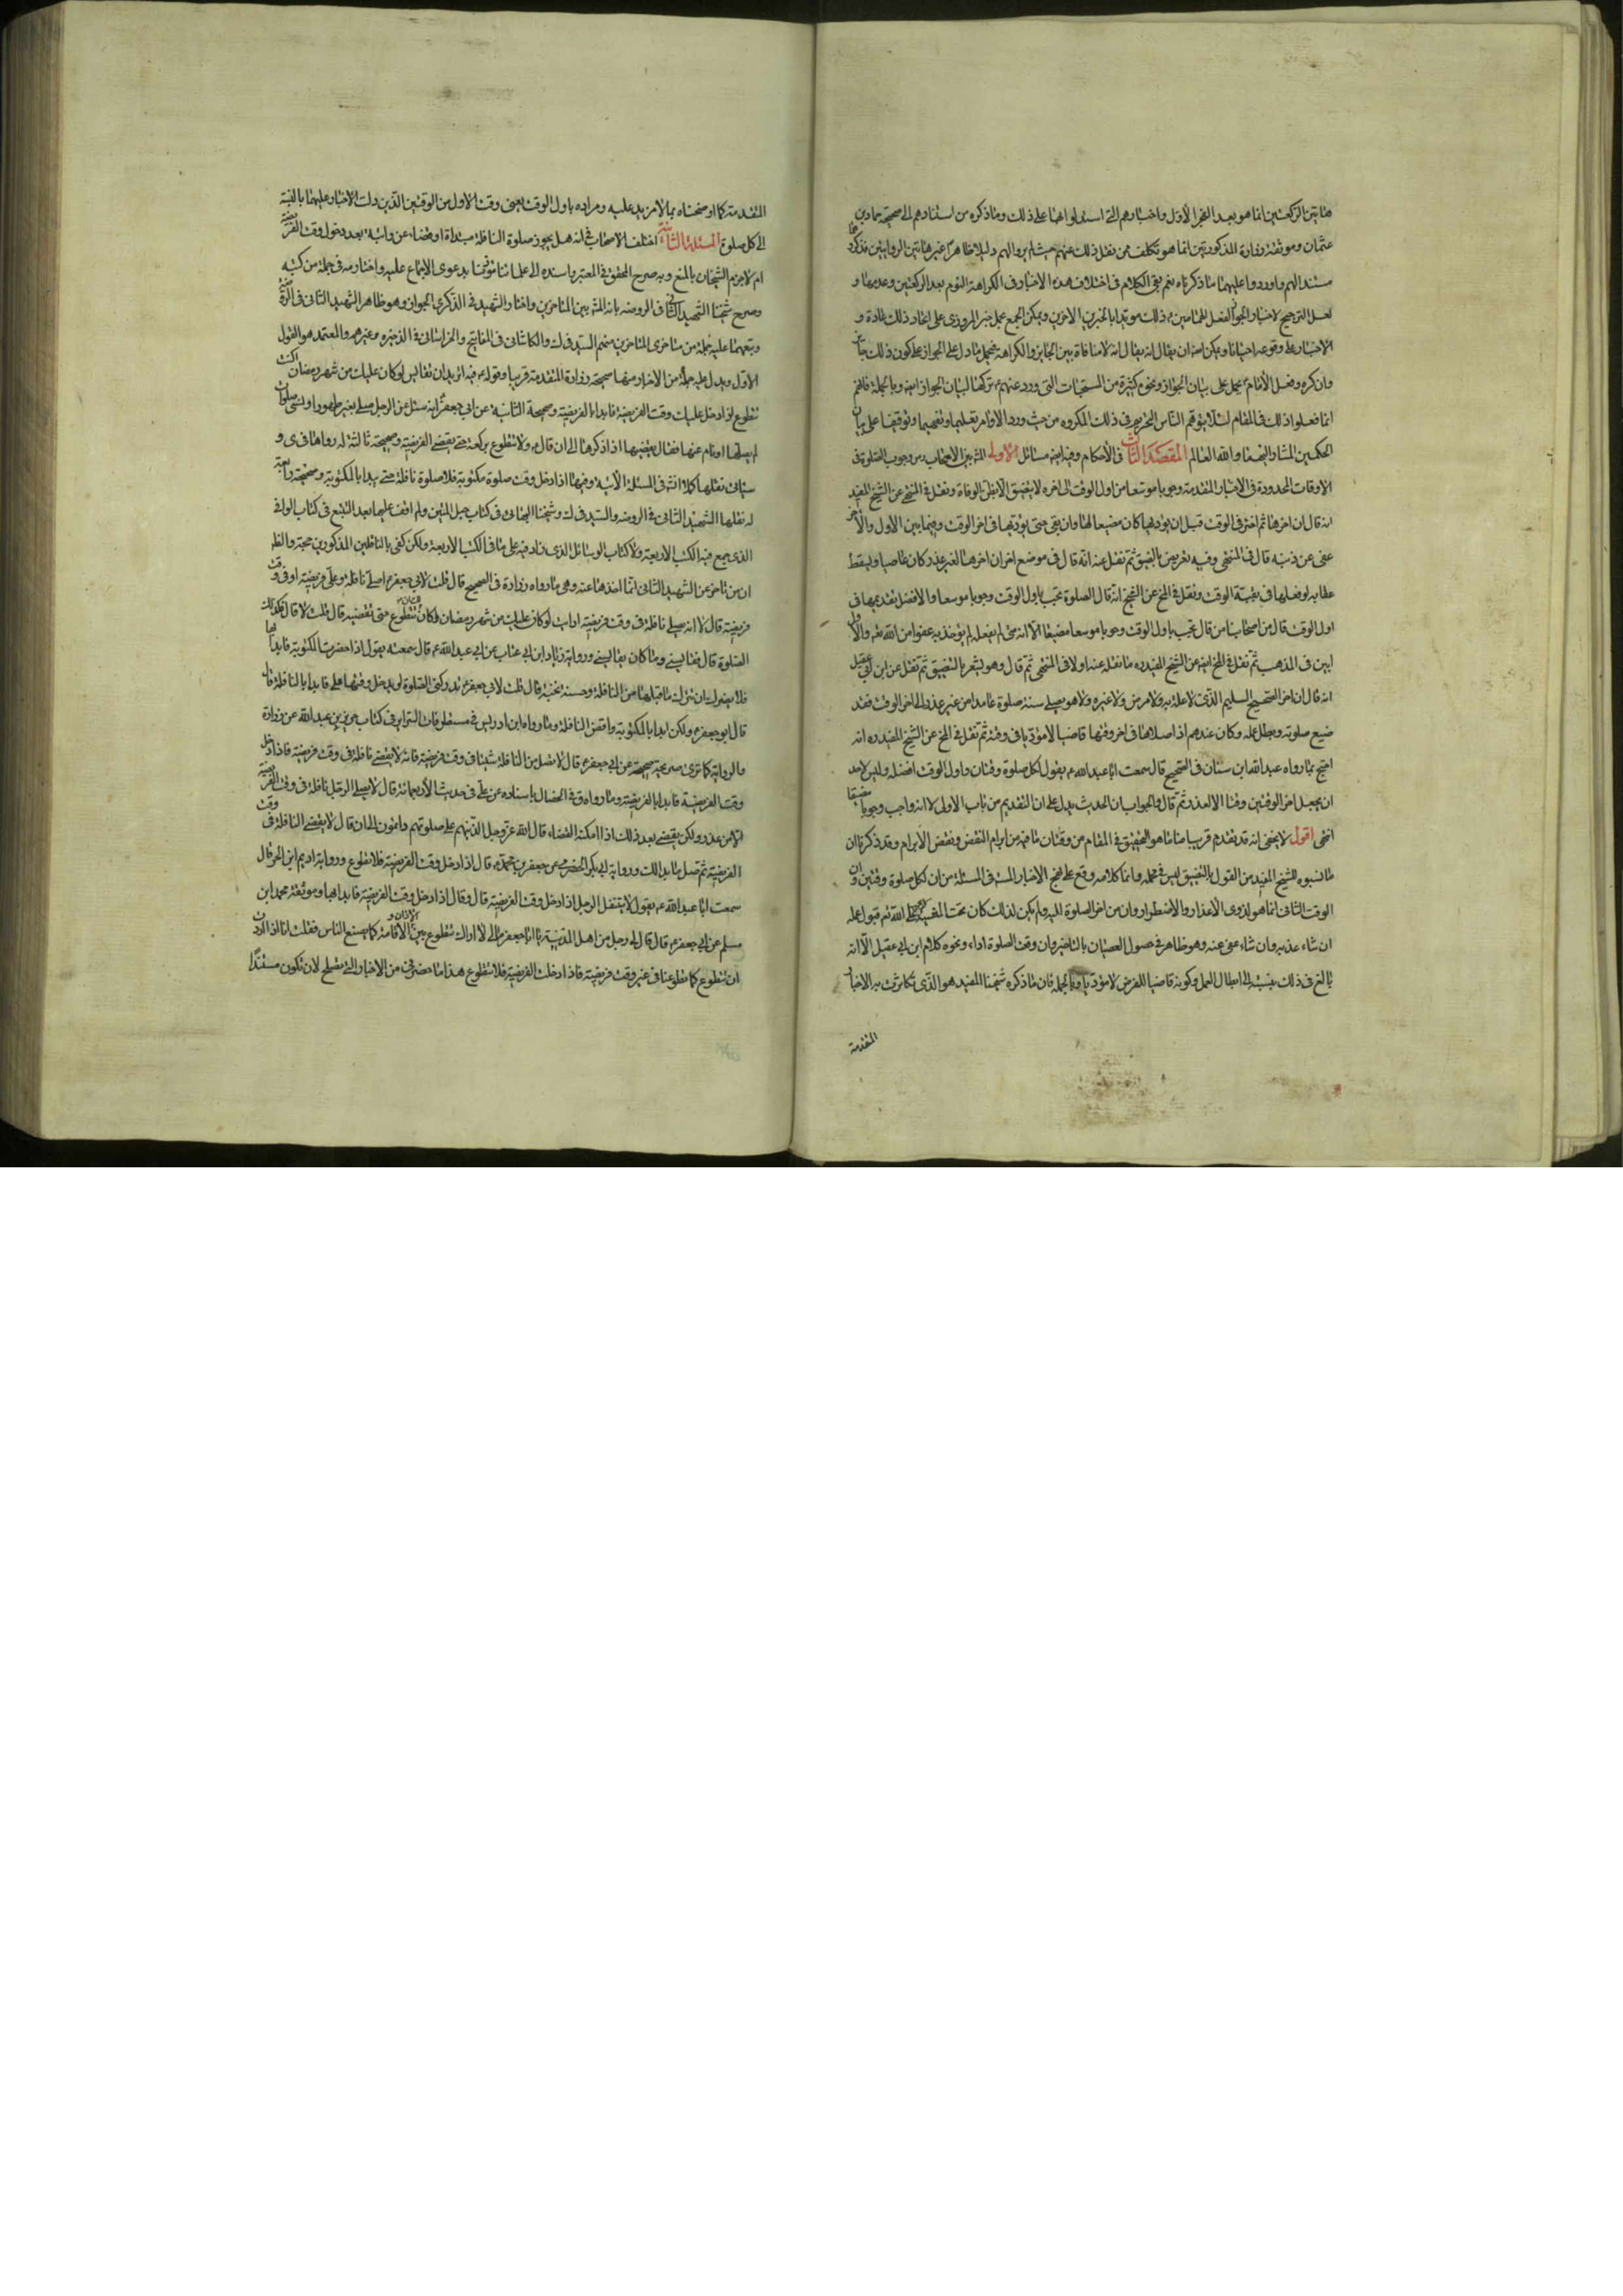 هاتين الركعتين انما هو بعد الفجر الاول واخبارهم التى استدلوا بها على ذلك وما ذكره من استنادهم الى صحيحة حماد بن
عثمان وموثقة زرارة المذكورتين انما هو تكلف ممن نقل ذلك عنهم حيث لم يروا لهم دليلا ظاهرا غير هاتين الروايتين فذكروهما
مستندا لهم واوردوا عليهما ما ذكرناه نعم بقى الكلام فى اختلاف هذه الاخبار فى الكراهة النوم بعد الركعتين وعدمها و
لعل الترجيح لاخبار الجواز لفعلهم ذلك مؤيدا بالخبرين الاخيرين ويمكن الجمع بحمل خبر المروزى على اتخاذ ذلك عادة و
الاخبار على وقوعه احيانا ويمكن ايضا ان يقال انه لا منافاة بين الجايز والكراهة فيحمل ما دل على الجواز على كون ذلك جايزا
وان كره وفعل الامام يحمل على بيان الجواز ونحوه كثيرة من المستحبات التى ورد عنهم تركها لبيان الجواز ايضا وبالجملة فانهم
انما فعلوا ذلك فى المقام لئلا يتوهم الناس التحريم فى ذلك المكروه من حيث ورود الاوامر بفعلها وتفهيما وتوقيفا على بيان
الحكمين المشار اليهما والله العالم المقصد الثالث فى الاحكام وفيه ايضا مسائل الاولى المشهور بين الاصحاب رض وجوب الصلوة فى
الاوقات المحدودة فى الاخبار المتقدمة وجوبا موسعا من اول الوقت الى اخره لا يتضيق الا بظن الوفاة ونقل فى المخ عن الشيخ المفيد
انه قال ان اخرها ثم اخترم فى الوقت قبل ان يؤديها كان مضيعا لها وان بقى حتى يؤديها فى اخر الوقت وفيما بين الاول والاخر
عفى عن ذنبه قال فى المنتهى وفيه تعريض بالتضيق ثم نقل عنه انه قال فى موضع اخر ان اخرها لغير عذر كان عاصيا ويسقط
عقابه لو فعلها فى بقية الوقت ونقل فى المخ عن الشيخ انه قال الصلوة تجب باول الوقت وجوبا موسعا والافضل تقديمها فى
اول الوقت قال من اصحابنا من قال تجب باول الوقت وجوبا موسعا مضيقا الا انه متى لم يفعله لم يؤخذ به عفوا من الله تعالى والاول
ابين فى المذهب ثم نقل فى المخ ايضا عن الشيخ المفيد ره ما نقله عنه اولا فى المنتهى ثم قال وهو يشعر بالتضييق ثم نقل عن ابن ابى عقيل
انه قال ان اخر الصحيح السليم الذى لا علة به ولا مرض ولا غيره ولا هو يصلى سنة صلوة عامدا من غير عذر الى اخر الوقت فقد
ضيع صلوته وبطل عمله وكان عندهم اذا صلاها فى اخر وقتها قاضيا لا مؤديا فى وقته ثم نقل فى المخ عن الشيخ المفيد ره انه
احتج بما رواه عبد الله ابن سنان فى الصحيح قال سمعت ابا عبد الله ع يقول لكل صلوة وقتان واول الوقت افضله وليس لاحد
ان يجعل اخر الوقتين وقتا الا لعذر ثم قال والجواب ان الحديث يدل على ان التقديم من باب الاولى لا انه واجب وجوبا مضيقا
انتهى اقول لا يخفى انه قد تقدم قريبا منا ما هو التحقيق فى المقام من وقتان ما فيه من ابرام النقض ونقض الابرام وقد ذكرنا ان
ما نسبوه للشيخ المفيد من القول بالتضييق ليس فى محله وانما كلامه وقع على نهج الاخبار فى المسئلة من ان لكل صلوة وقتين وان
الوقت الثانى انما هو لذوى الاعذار والاضطرار وان من اخر الصلوة اليه ولم يكن لذلك كان تحت المشية الله ثم قبول عمله
ان شاء عذبه وان شاء عفى عنه وهو ظاهر فى حصول العصيان بالتاخير وان وقت الصلوة اداء ونحوه كلام ابن ابى عقيل الا انه
بالغ فى ذلك بنسبته الى ابطال العمل وكونه قاضيا للفرض لا مؤديا وبالجملة فان ما ذكره شيخنا المفيد هو الذى تكاثرت به الاخبار
المتقدمة
المتقدمة كما اوضحناه بما لا مزيد عليه ومراده باول الوقت يعنى وقت الاول من الوقتين الذين دلت الاخبار عليهما بالنسبة
الى كل صلوة المسئلة الثانية اختلف الاصحاب فى انه هل يجوز صلوة النافلة مبتداة او قضاء عن راتبة بعد دخول وقت الفريضة
ام لا جزم الشيخان بالمنع وبه صرح المحقق فى المعتبر واسنده الى علمائنا مؤذنا بدعوى الاجماع عليه واختاره فى جملة من كتبه
وصرح شيخنا الشهيد الثانى فى الروضة بانه المشهور بين المتاخرين واختار الشهيد فى الذكرى الجواز وهو ظاهر الشهيد الثانى فى الروضة
وتبعهما عليه جملة من متاخرى المتاخرين منهم السيد فى ك والكاشانى فى المفاتيح والخراسانى فى الذخيره وغيرهم والمعتمد هو القول
الاول ويدل عليه جملة من الاخبار ومنها صحيحة زرارة المتقدمة قريبا وقوله ع فيه اتريدان تقايس لو كان عليك من شهر رمضان اكنت
تطوع اذا دخل عليك وقت الفريضة فابدا بالفريضة وصحيحة الثانية عن ابى جعفر انه سئل عن الرجل صلى بغير طهور او نسى صلوات
لم يصلها او نام عنها فقال يقضيها اذا ذكرها الى ان قال ع ولا يتطوع بركعة حتى يقضى الفريضة وصحيحة ثالثة له رواها فى و
سياتى نقلها كملا انش فى المسئلة الآتية وفيها اذا دخل وقت صلوة مكتوبة فلا صلوة نافلة حتى يبدا بالمكتوبة وصحيحة رابعة
له نقلها الشهيد الثانى فى الروضة والسيد فى ك وشيخنا البهائى فى كتاب حبل المتين ولم اقف عليها بعد التتبع فى كتاب الوافى
الذى جمع فيه الكتب الاربعة ولا كتاب الوسائل الذى زاد فيه على ما فى الكتب الاربعة ولكن كفى بالناقلين المذكورين حجة والظاهر
ان من تاخر عن الشهيد الثانى انما اخذها عنه وهى ما رواه زرارة فى الصحيح قال قلت لابى جعفر ع اصلى نافلة وعلى فريضة او فى وقت
فريضة قال لا انه لا يصلى نافلة فى وقت فريضة ارايت لو كان عليك من شهر رمضان اكان لك ان تتطوع حتى تقضيه قال قلت لا قال فكذلك
الصلوة قال فقايسنى وما كان يقايسنى ورواية زياد ابن ابى عتاب عن ابى عبد الله ع قال سمعته يقول اذا حضرت المكتوبة فابدا بها
فلا يضرك ان تترك ما قبلها من النافلة وحسنة نجبة قال قلت لابى جعفر ع تدركنى الصلوة لو يدخل وقتها على فابدا بالنافلة قال
قال ابو جعفر ع ولكن ابدا بالمكتوبة واقض النافلة وما رواه ابن ادريس فى مستطرفات السراير فى كتاب حريز بن عبد الله عن زرارة
والرواية كما ترى صريحة صحيحة عن ابى جعفر ع قال لا تصل من النافلة شيئا فى وقت فريضة فانه لا يقضى نافلة فى وقت فريضة فاذا دخل
وقت الفريضة فابدا بالفريضة وما رواه ق فى الخصال باسناده عن على فى حديث الاربعمائة قال لا يصلى الرجل نافلة فى وقت الفريضة
الا من عذر ولكن يقضى بعد ذلك اذا امكنه القضاء قال الله عز وجل الذين هم على صلوتهم دائمون الى ان قال لا يقضى النافلة فى وقت
الفريضة ثم صل ما بدا لك ورواية ابى بكر الحضرمى عن جعفر بن محمد ع قال اذا دخل وقت الفريضة فلا تطوع ورواية اديم ابن الحر قال
سمعت ابا عبد الله ع يقول لا يتنفل الرجل اذا دخل وقت الفريضة قال وقال اذا دخل وقت الفريضة فابدا بها وموثقة محمد ابن
مسلم عن ابى جعفر ع قال قال لى رجل من اهل المدينة يا ابا جعفر ما لى لا اراك تتطوع بين الاذان والاقامة كما يصنع الناس فقلت انا اذا اردنا
ان نتطوع كما تطوعنا فى غير وقت فريضة فاذا دخلت الفريضة فلا تطوع هذا ما حضرنى من الاخبار التى يصلح لان تكون مستندا